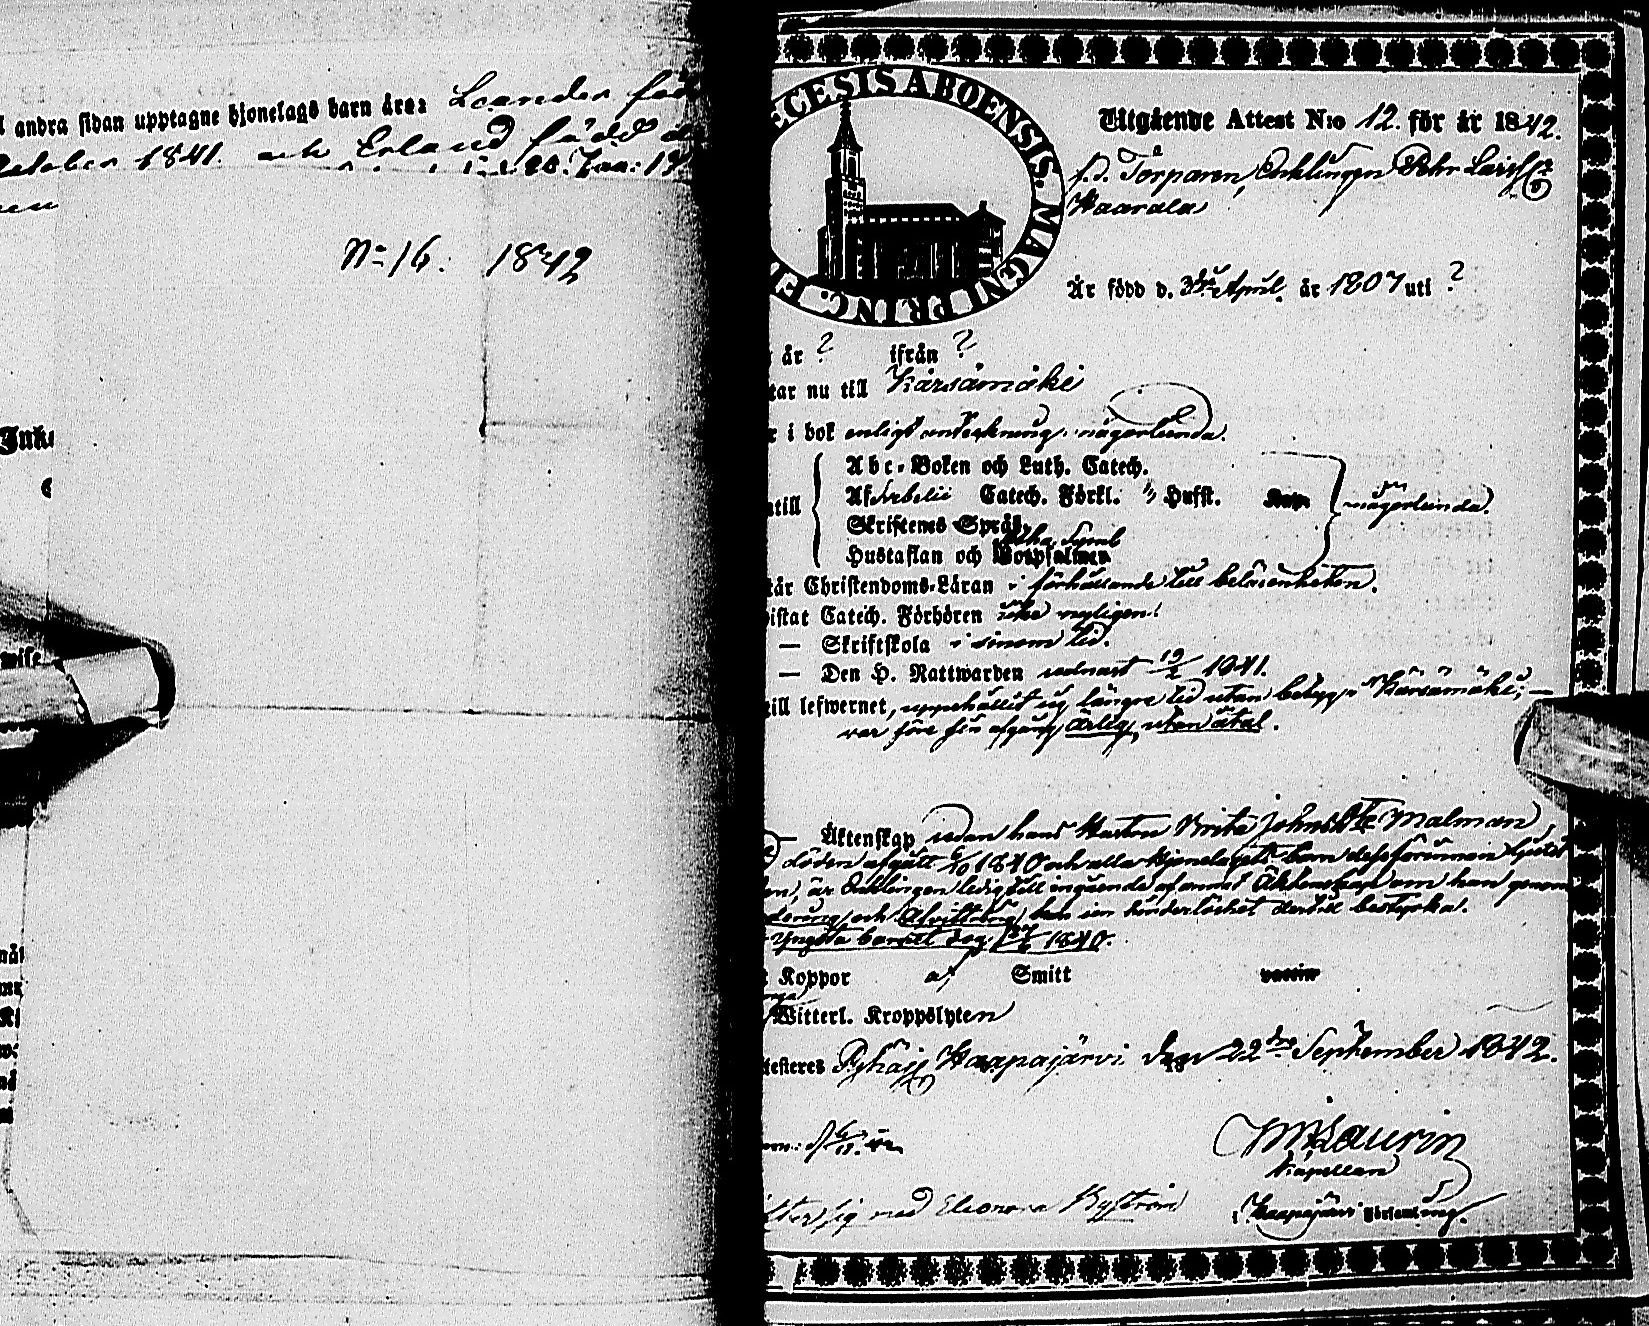 andra sidan upptagne hjonelags barn äro: Leander föd
October 1841. och Erland född d
No 16. 1842
Ink
wist
DIŒCESIS ABOENSIS. MAGNI PRINC. FI
Utgående Attest N:o 12. för år 1842.
f. d. Torparen, Enklingen Pehr Larsson
Kaarala
Är född d. 3dje April år 1807 uti ?
år ? ifrån ?
tar nu till Kärsämäki
i bok enligt anteckning någorlunda.
Abc-Boken och Luth. Catech.
till Af Svebelii Catech. Förkl. Hufst. någorlunda.
Skriftenes Språk,
Atha. Symb
Hustaflan och Botpsalmer
tår Christendoms-Läran i förhållande till beläsenheten.
istat Catech. Förhören icke nyligen!
— Skriftskola i sinom tid.
— Den H. Nattwarden sednast 19/2 1841.
till lefwernet, uppehållit sig längre tid utan betyg i Kärsämäki; —
var före sin afgång ärlig utan åtal.
— Äktenskap sedan hans Hustru Brita Johnsdtr Malman,
döden afgått 1840 och alla hjonelagets barn dessförinnan
är Enklingen ledig till ingående af annat Äktenskap om han genom
och Afvittring, kan sin hinderlöshet dertill bestyrka.
Yngsta barnet dog 1840.
Koppor af Smitt
Witterl. Kroppslyten
testeres Pyhäj. Haapajärvi den 22dra September 1842.
W Laurin
Kapellan
Haapajärvi församling.
sig med Eleonora Byström